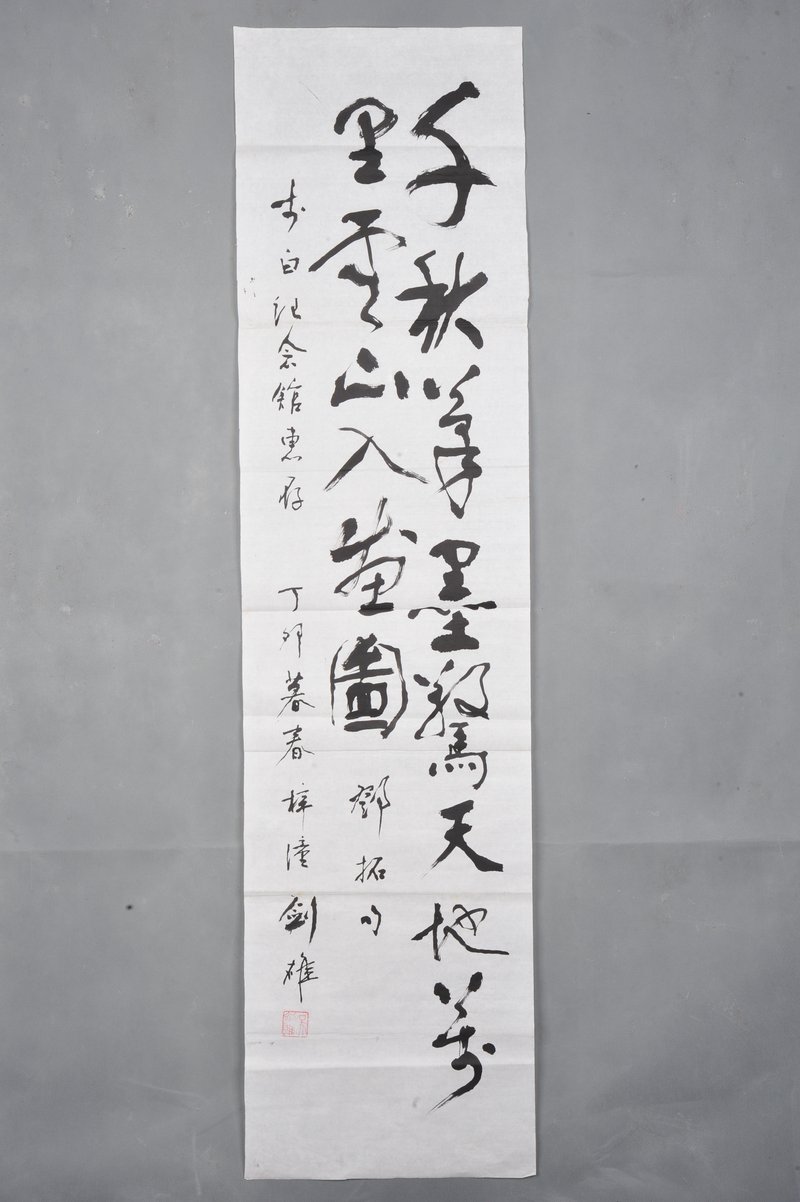 千秋笔墨驚天地萬
里雲山入畫圖
鄧拓句
李白纪念館惠存 丁卯暮春 梓潼 劍雄